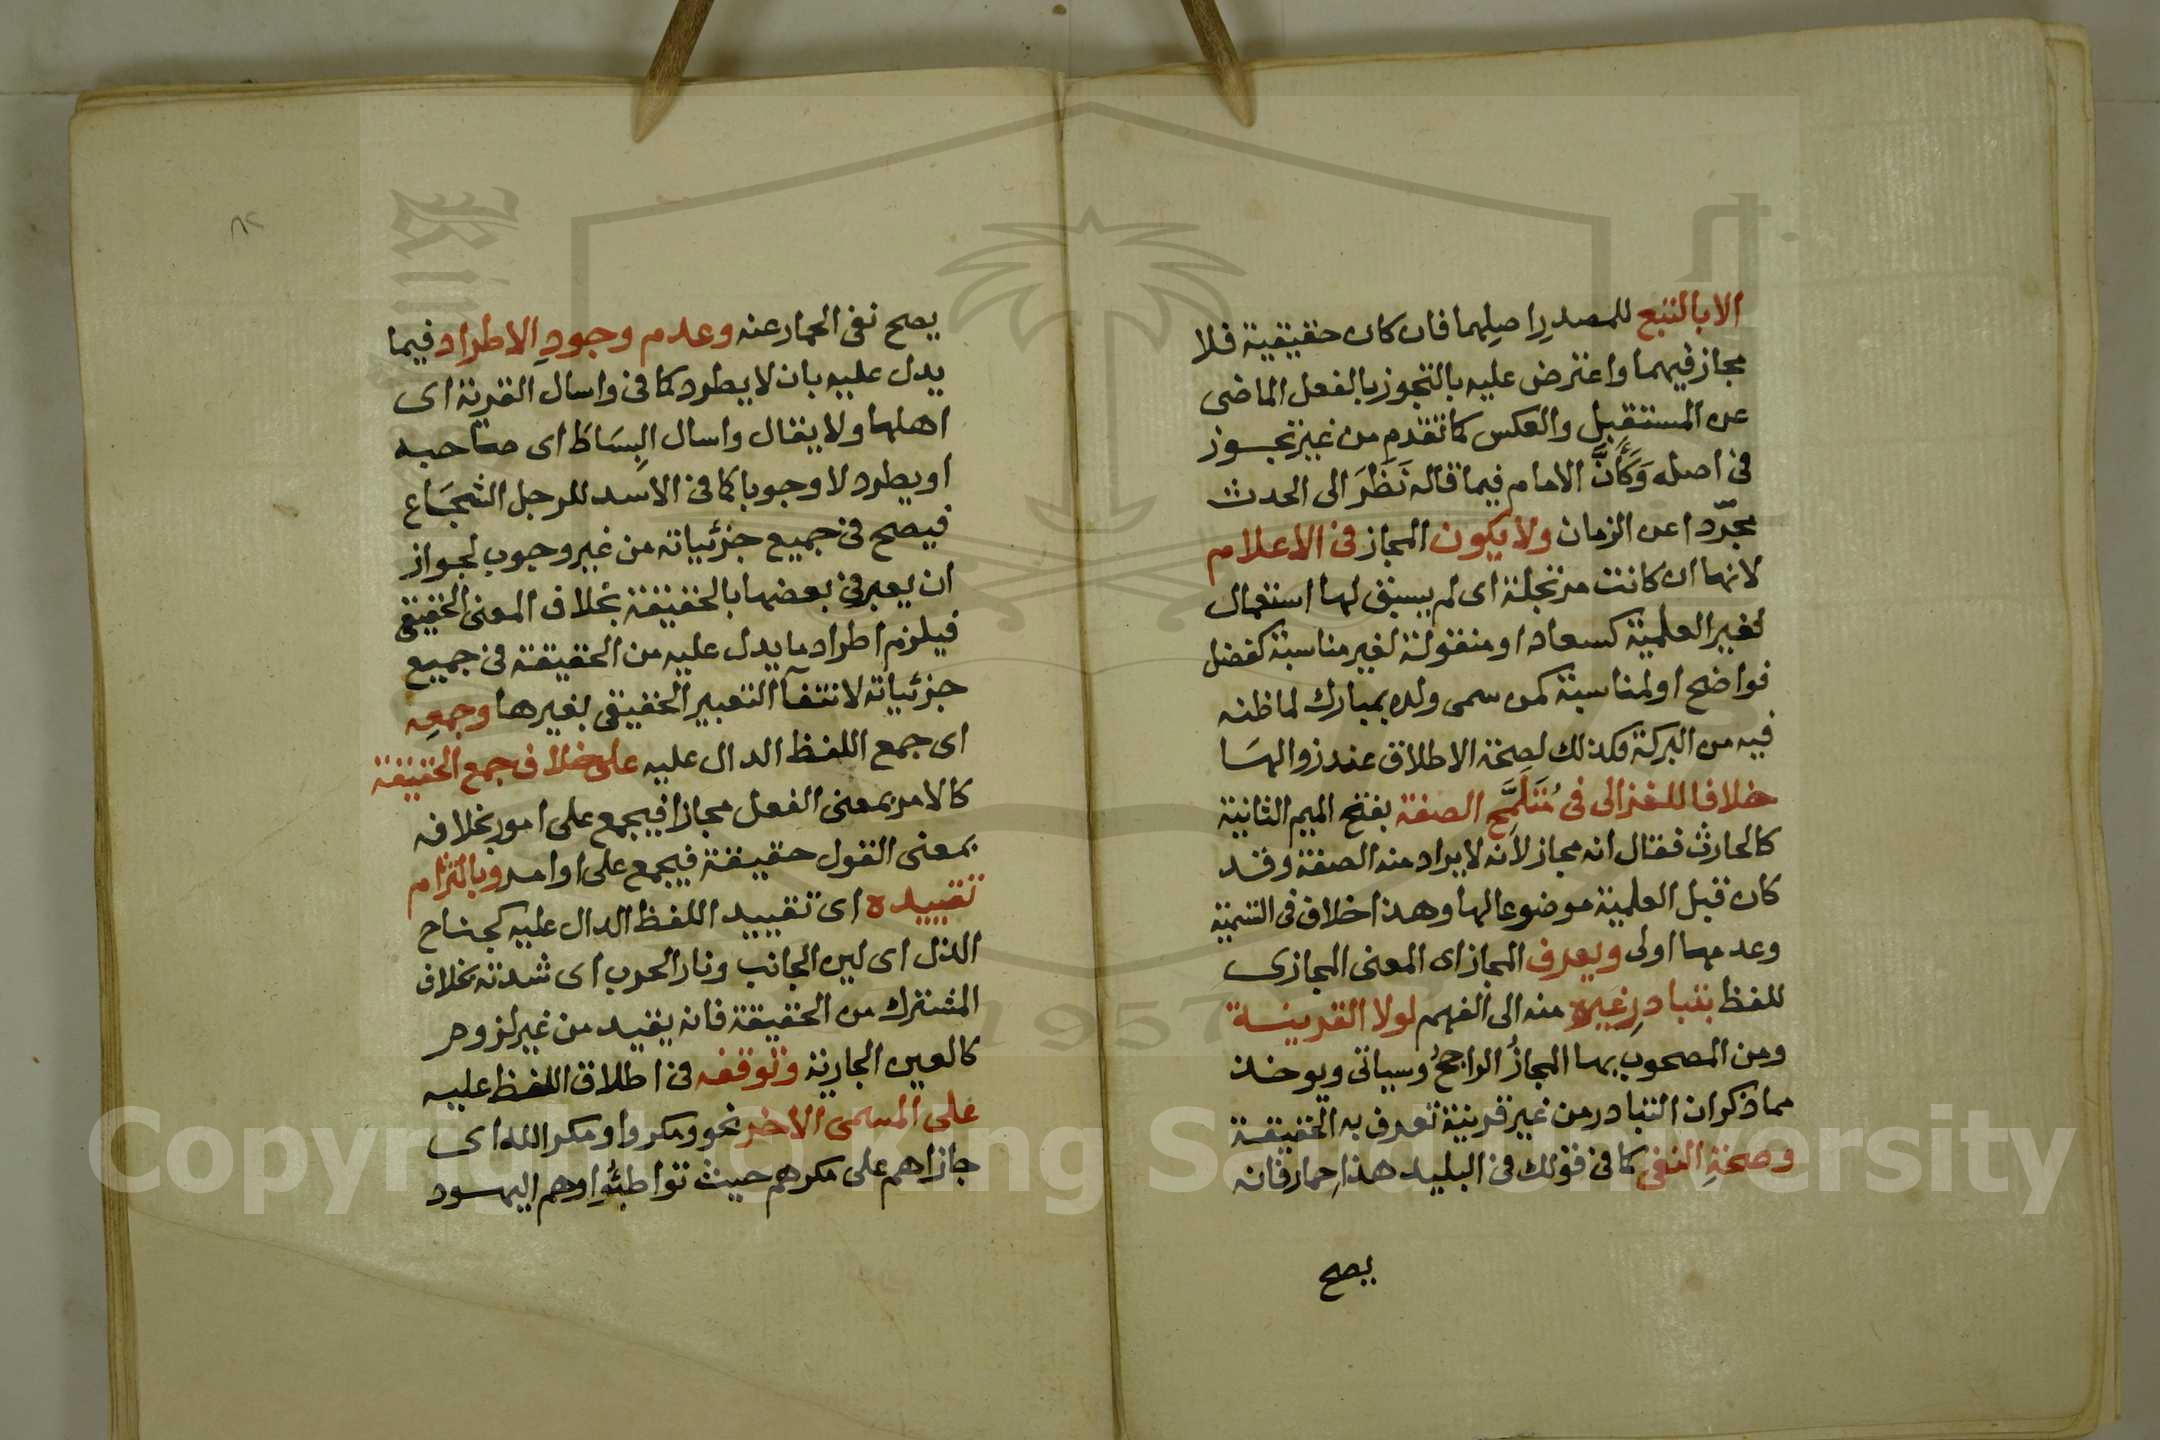 الا بالتبع للمصدر اصلهما فان كان حقيقية فلا
مجاز فيهما واعترض عليه بالتجوز بالفعل الماضى
عن المستقبل والعكس كما تقدم من غير تجوز
فى اصله وَكَأَنَّ الامام فيما قاله نَظَرَ الى الحدث
مجرّدا عن الزمان ولا يكون المجاز فى الاعلام
لانها ان كانت مرتجلة اى لم يسبق لها استعمال
لغير العلمية كسعاد او منقولة لغير مناسبة كفضل
فواضح او لمناسبة كمن سمى ولده بمبارك لما ظنه
فيه من البركة فكذلك لصحة الاطلاق عند زوالهَا
خلافا للغزالى فى مُتَلَمَّح الصفة بفتح الميم الثانية
كالحارث فقال انه مجاز لانه لا يراد منه الصفة وقد
كان قبل العلمية موضوعا لها وهذا خلاف فى التسمية
وعدمها اولى ويعرف المجاز اى المعنى المجازى
للفظ بتبادرِ غيره منه الى الفهم لولا القرينة
ومن المصحوب بها المجازُ الراجحُ وسياتى ويوخذ
مما ذكر ان التبادر من غير قرينة تعرف به الحقيقة
وصحةِ النفى كما فى قولك فى البليد هذا حمار فانه
يصح
٨٢
يصح نفى الحمار عنه وعدم وجوبِ الاطراد فيما
يدل عليه بان لا يطرد كما فى واسال القرية اى
اهلها ولا يقال واسال البِسَاطَ اى صاحبه
او يطرد لا وجوبا كما فى الاسد للرجل الشجَاع
فيصح فى جميع جزئياته من غير وجوب لجواز
ان يعبر فى بعضها بالحقيقة بخلاف المعنى الحقيقى
فيلزم اطراد ما يدل عليه من الحقيقة فى جميع
جزئياته لانتفآ التعبير الحقيقى بغيرها وجمعِه
اى جمع اللفظ الدال عليه على خلاف جمع الحقيقة
كالامر بمعنى الفعل مجازا فيجمع على امور بخلافه
بمعنى القول حقيقة فيجمع على اوامر وبالتزام
تقييده اى تقييد اللفظ الدال عليه كجناح
الذل اى لين الجانب ونار الحرب اى شدته بخلاف
المشترك من الحقيقة فانه يقيد من غير لزوم
كالعين الجارية وتوقفه فى اطلاق اللفظ عليه
على المسمى الاخر نحو ومكروا ومكر الله اى
جازاهم على مكرهم حيث تواطئوا وهم اليهود
1957
Copyright © King Saud University